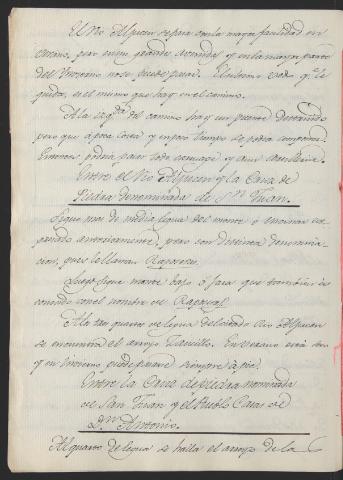 El Río Aljucen se pasa con la mayor facilidad en
verano, pero tiene grandes avenidas y en la mayor parte
del Invierno no se puede pasar. El último vado q.e le
queda, es el mismo que hay en el camino.
A la izq.da del camino hay un puente derruido
pero que a poca costa y en poco tiempo se podia componer.
Entonces podria pasar todo carruage y aun Artilleria.
Entre el Río Aljucen y la Cruz de
Piedra denominada de S.n Juan.
Sigue mas de media legua del monte ó encinar es-
presado anteriormente, pero con distinta denomina-
cion, pues le llaman
Luego sigue monte bajo ó jara que tambien es
conocido con el nombre de
A los tres quartos de legua del citado Río Aljucen
se encuentra el arroyo En verano está seco
y en Invierno puede pasarse siempre á pie.
Entre la Cruz de Piedra nominada
de San Juan y el Pueblo Casas de
D.n Antonio.
Al quarto de legua se halla el arroyo de la